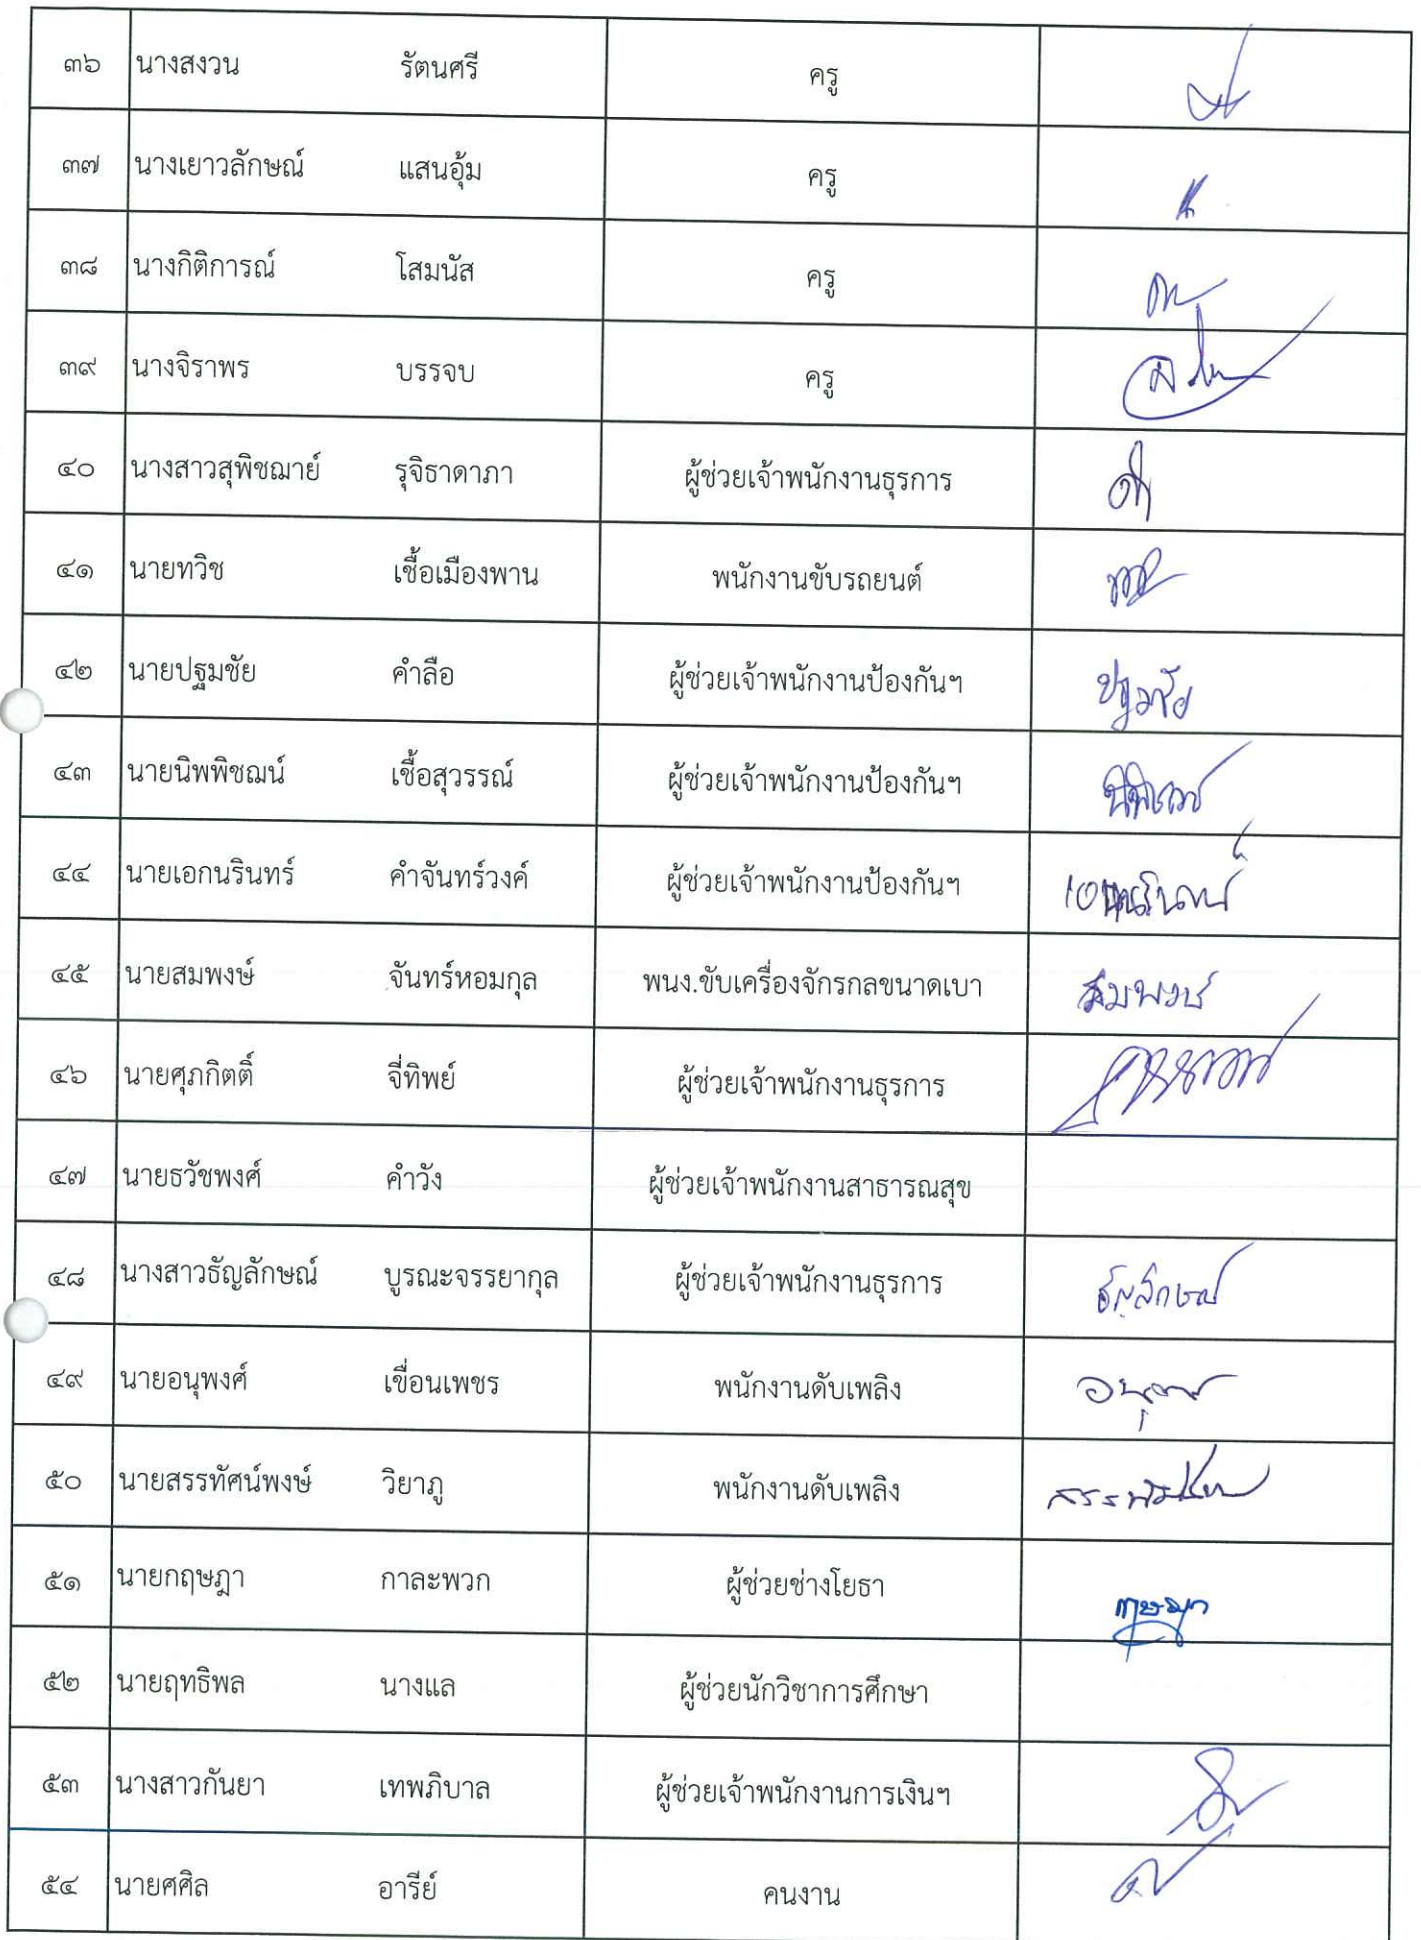 ๓๖ นางสงวน รัตนศรี ครู
๓๗ นางเยาวลักษณ์ แสนอุ้ม ครู
๓๘ นางกิติการณ์ โสมนัส ครู
๓๙ นางจิราพร บรรจบ ครู
๔๐ นางสาวสุพิชฌาย์ รุจิธาดาภา ผู้ช่วยเจ้าพนักงานธุรการ
๔๑ นายทวิช เชื้อเมืองพาน พนักงานขับรถยนต์
๔๒ นายปฐมชัย คำลือ ผู้ช่วยเจ้าพนักงานป้องกันฯ ปฐมชัย
๔๓ นายนิพพิชฌน์ เชื้อสุวรรณ์ ผู้ช่วยเจ้าพนักงานป้องกันฯ
๔๔ นายเอกนรินทร์ คำจันทร์วงค์ ผู้ช่วยเจ้าพนักงานป้องกันฯ
๔๕ นายสมพงษ์ จันทร์หอมกุล พนง.ขับเครื่องจักรกลขนาดเบา สมพงษ์
๔๖ นายศุภกิตติ์ จี่ทิพย์ ผู้ช่วยเจ้าพนักงานธุรการ
๔๗ นายธวัชพงศ์ คำวัง ผู้ช่วยเจ้าพนักงานสาธารณสุข
๔๘ นางสาวธัญลักษณ์ บูรณะจรรยากุล ผู้ช่วยเจ้าพนักงานธุรการ ธัญลักษณ์
๔๙ นายอนุพงศ์ เขื่อนเพชร พนักงานดับเพลิง
๕๐ นายสรรทัศน์พงษ์ วิยาภู พนักงานดับเพลิง
๕๑ นายกฤษฎา กาละพวก ผู้ช่วยช่างโยธา กฤษฎา
๕๒ นายฤทธิพล นางแล ผู้ช่วยนักวิชาการศึกษา
๕๓ นางสาวกันยา เทพภิบาล ผู้ช่วยเจ้าพนักงานการเงินฯ
๕๔ นายศศิล อารีย์ คนงาน